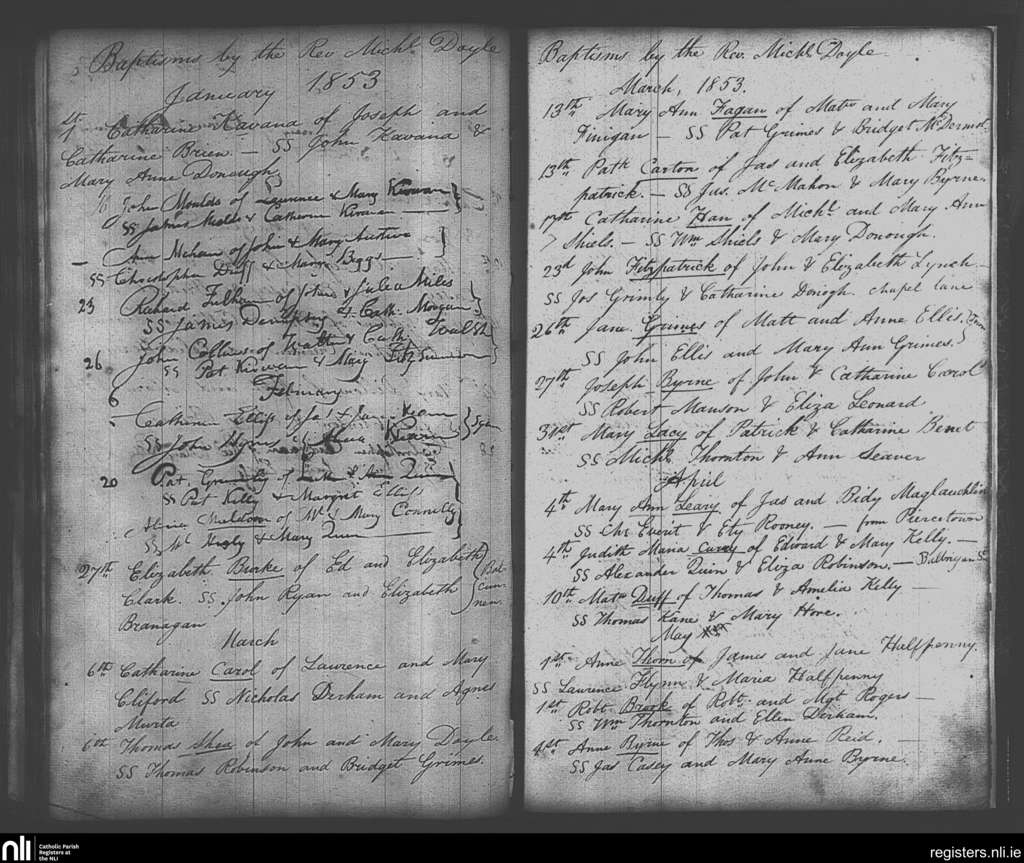 Baptisms by the Rev Michl. Doyle
January 1853
1st Catharine Kavana of Joseph and
Catharine Brien. — SS John Kavana &
Mary Anne Donough
6 John Moulds of Lawrence & Mary Kirwan
SS James Molds & Catherine Kirwan
Ann Mehan of John & Mary
SS Christopher Duff & Mary Beggs —
23 Richard of & Julea Miles
SS James & Cath. Morgan
26 John Collins of & Cath. Walsh
SS Pat Kirwan & Mary Fitzsimmon
February
6 Catherine Elliss of Jas & Jane
SS John &
20 Pat. of & Ann Quinn
SS Pat Kelly & Margret Elliss
of & Mary Connelly
SS & Mary Quin
27th Elizabeth Brake of Ed and Elizabeth
Clark. SS. John Ryan and Elizabeth
Branagan
March
6th Catharine Carol of Lawrence and Mary
Cliford SS Nicholas Derham and Agnes
Murta
6th Thomas Shea of John and Mary Doyle
SS Thomas Robinson and Bridget Grimes.
Baptisms by the Rev. Michl. Doyle
March, 1853.
13th Mary Ann Fagan of Matw and Mary
Finigan — SS Pat Grimes & Bridget McDermot
13th Patk Carton of Jas and Elizabeth Fitz-
patrick. — SS Jas. Mc Mahon & Mary Byrne.
17th Catharine Han of Michl. and Mary Ann
Shiels. — SS Wm Shiels & Mary Donough.
23d John Fitzpatrick of John & Elizabeth Lynch
SS Jos Grimly & Catharine Donogh. chapel lane
26th Jane Grimes of Matt and Anne Ellis.
SS John Ellis and Mary Ann Grimes.
27th Joseph Byrne of John & Catharine Carol
SS Robert Manson & Eliza Leonard
31st Mary Lacy of Patrick & Catharine Benet
SS Michl Thornton & Ann Seaver
April
4th Mary Ann Leary of Jas and Bidy Maglauchlin
SS Chr. Everit & Ety Rooney. — from Piercetown
4th Judith Maria Curry of Edward & Mary Kelly. —
SS Alexander Quin & Eliza Robinson. —
10th Matw Duff of Thomas & Amelia Kelly —
SS Thomas Kane & Mary Hore.
May
1st Anne Thorn of James and Jane Halfpenny.
SS Laurence Flynn & Maria Halfpenny
1st Robt. Brook of Robt. and Mgt Rogers —
SS Wm Thornton and Ellen Derham.
Anne Byrne of Thos & Anne Reid. —
SS Jas Casey and Mary Anne Byrne.
nli
Catholic Parish
Registers at
the NLI
registers.nli.ie